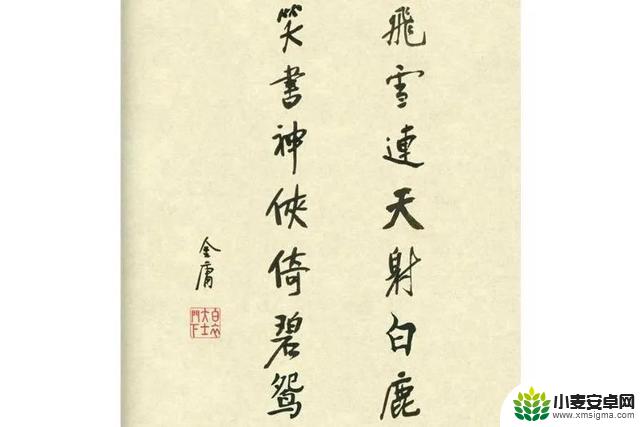 飛雪連天射白鹿
笑書神俠倚碧鴛
金庸
白衣
大士
門下
小麦安卓网
www.xmsigma.com